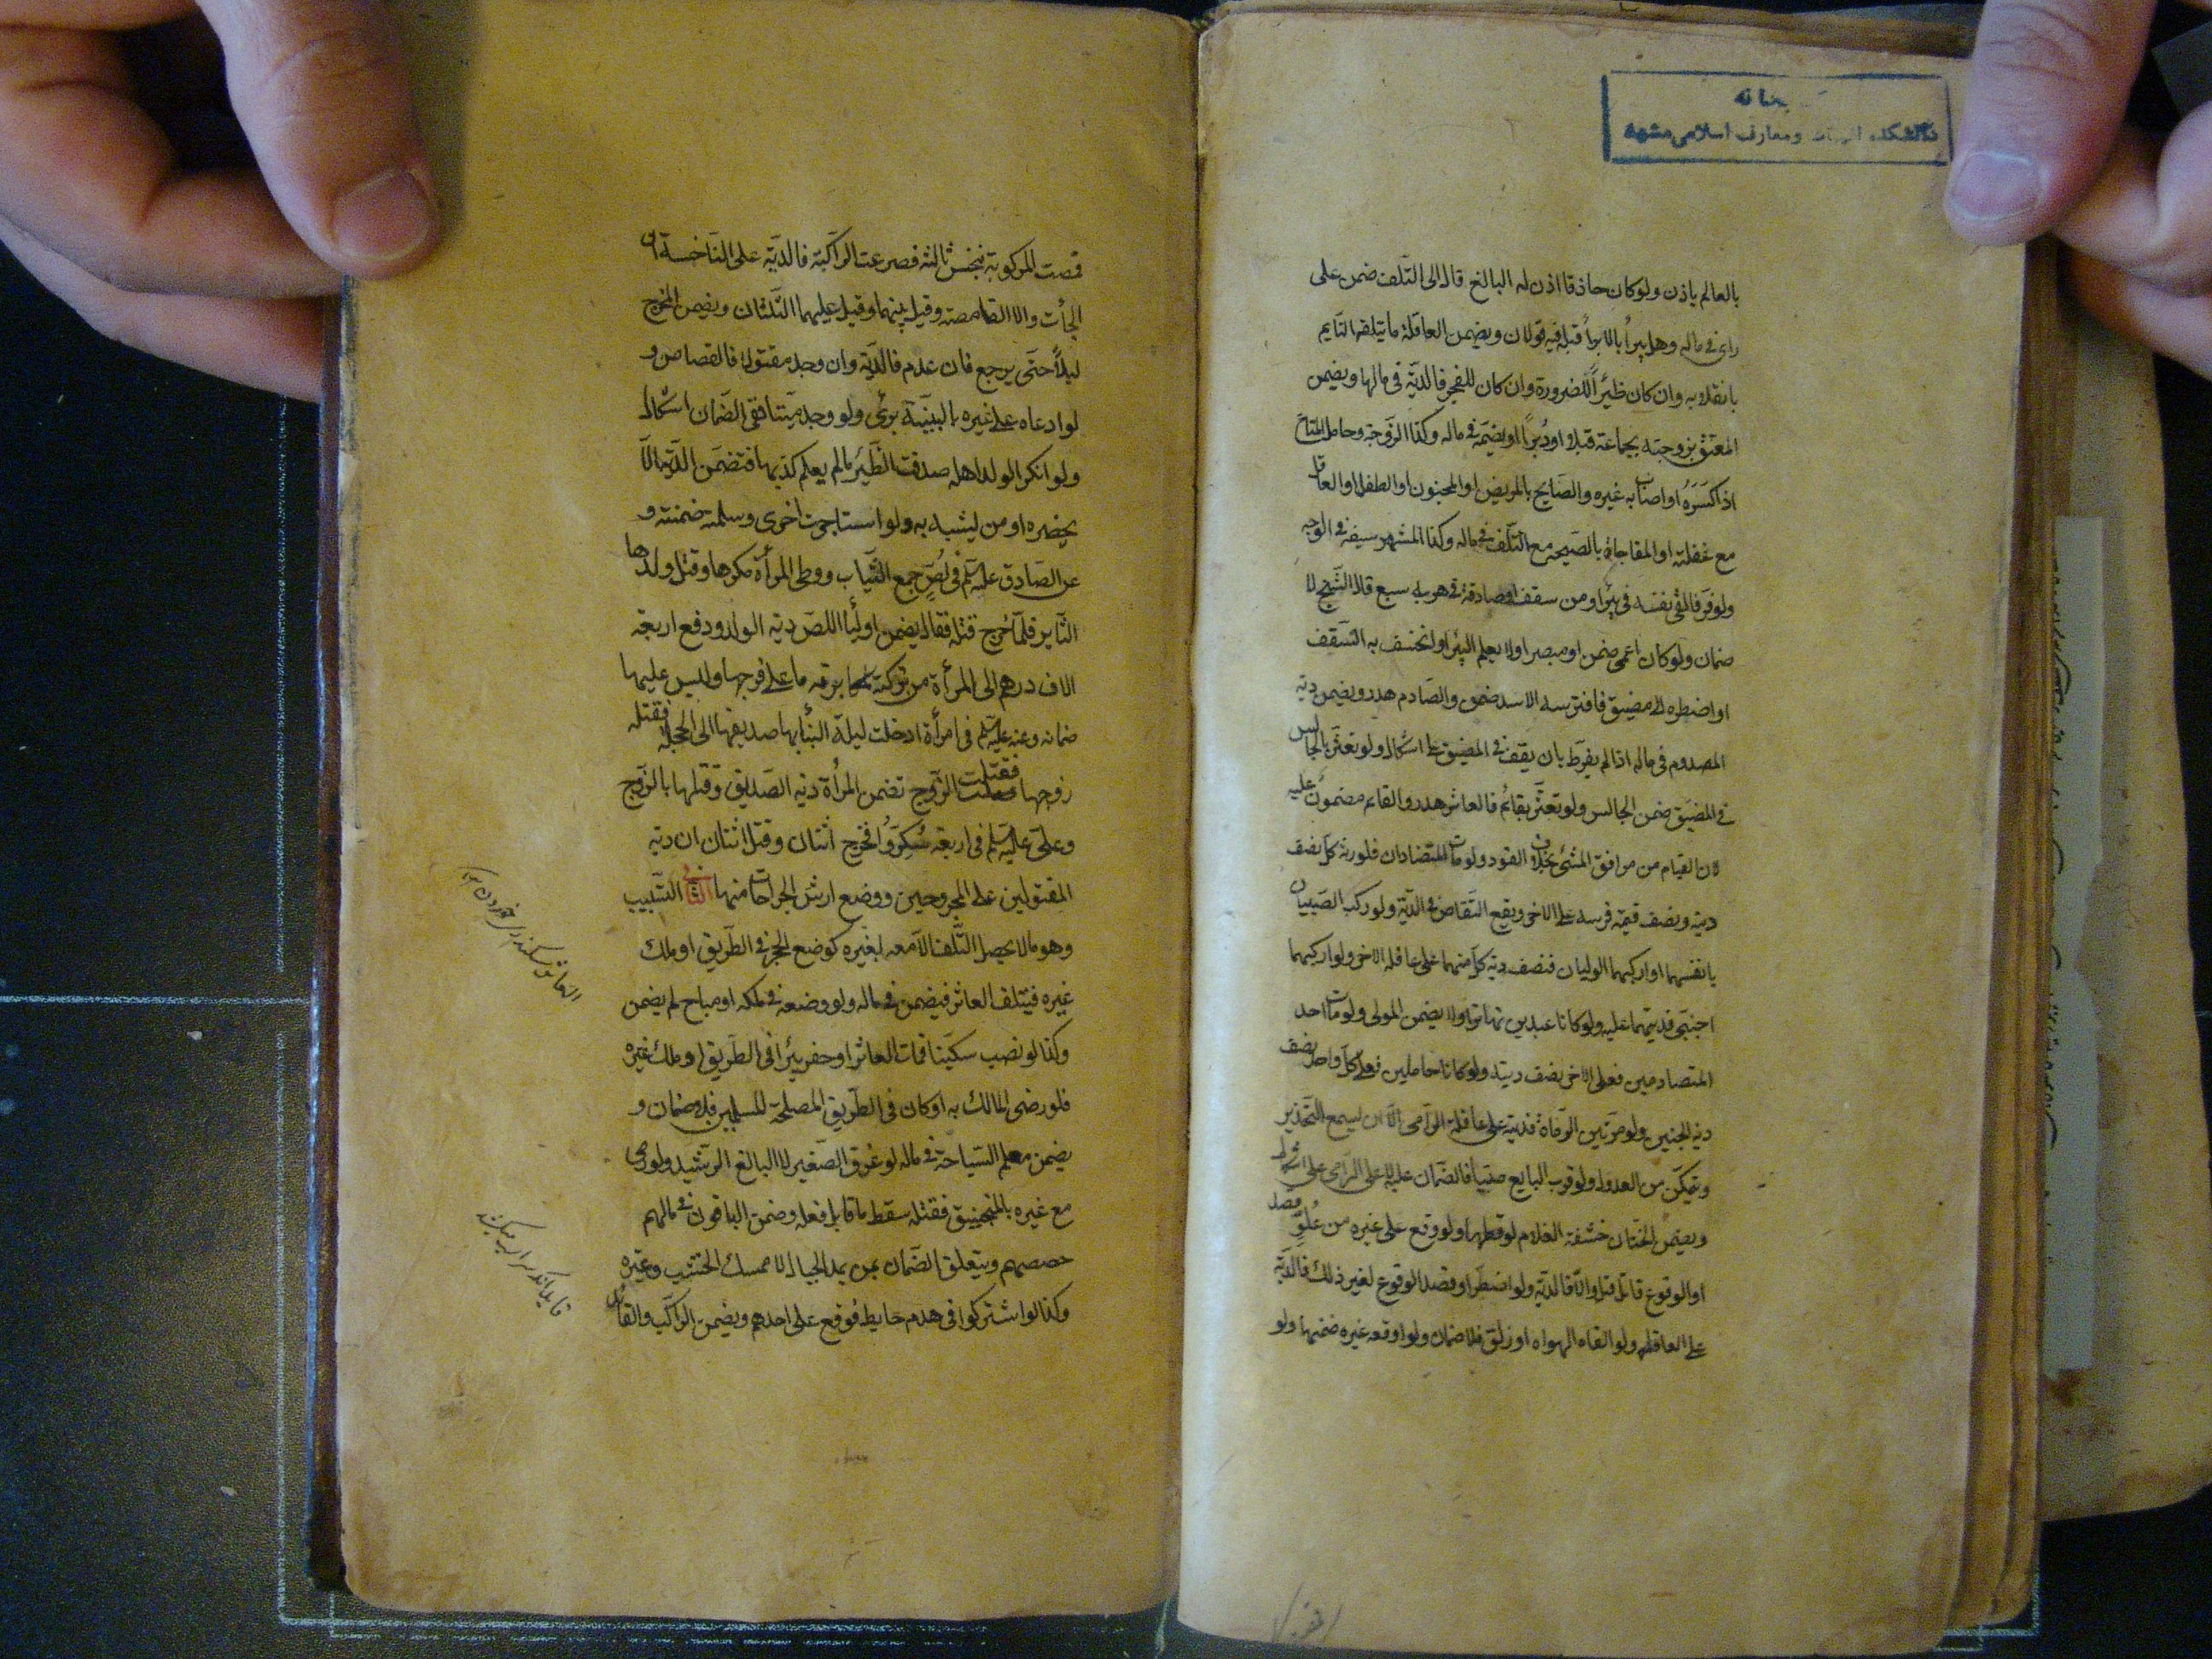 دانشکده الهیات ومعارف اسلامی مشهد
بالعالم یاذن ولو کان حاذقا اذن له البالغ قال الی التلف ضمن علی
رای فی ماله وهل یبرأ بالابراء قبله فیه قولان ویضمن العاقلة ما یتلفه النایم
بانقلابه وان کان ظئرا للضرورة وان کان للفخر فالدیة فی مالها ویضمن
المعنف بزوجته بجماعه قبلا او دبرا او بضمه فی ماله وکذا الزوجة وحامل المتاع
اذا کسره او اصاب به غیره والصایح بالمریض او المجنون او الطفل او العاقل
مع غفلته او المفاجاة بالصیحه مع التلف فی ماله وکذا المشهر سیفه فی الوجه
ولو فر فالقی نفسه فی بئر او من سقف او صادفه فی هربه سبع قال الشیخ لا
ضمان ولو کان اعمی ضمن او مبصرا ولا یعلم البئر او انخسف به السقف
او اضطره الی مضیق فافترسه الاسد ضمن والصادم هدر ویضمن دیه
المصدوم فی ماله اذا لم یفرط بان یقف فی المضیق علی اشکال ولو تعثر بالجالس
فی المضیق ضمن الجالس ولو تعثر بقائم فالعاثر هدر والقائم مضمون علیه
لان القیام من مرافق المشی بخلاف القعود ولو مات المتصادمان فلورثة کل نصف
دیته ونصف قیمة فرسه علی الاخر ویقع التقاص فی الدیة ولو رکب الصبیان
بانفسهما او ارکبهما الولیان فنصف دیة کل منهما علی عاقلة الاخر ولو ارکبهما
اجنبی فدیتهما علیه ولو کانا عبدین تهاترا ولا یضمن المولی ولو مات احد
المتصادمین فعلی الاخر نصف دیته ولو کانتا حاملین فعلی کل واحد نصف
دیه الجنین ولو مر بین الرماة فدیته علی عاقلة الرامی الا ان یسمع التحذیر
ویتمکن من العدول ولو قرب البایع صبیا فالضمان علیه لا علی الرامی علی اشکال
ویضمن الختان حشفة الغلام لو قطعها ولو وقع علی غیره من علو قصد
او الوقوع قاتل قتل والا فالدیة ولو اضطر او قصد الوقوع لغیر ذلک فالدیة
علی العاقلة ولو القاه الهواء او زلق فلا ضمان ولو اوقعه غیره ضمنها ولو
قمصت المرکوبة بنخس ثالثه فصرعت الراکبة فالدیة علی الناخسة ان
الجأت والا القامصة وقیل بینهما وقیل علیهما الثلثان ویضمن المخرج
لیلا حتی یرجع فان عدم فالدیة وان وجد مقتولا فالقصاص و
لو ادعاه علی غیره بالبینة برئ ولو وجد میتا ففی الضمان اشکال
ولو انکر الولد اهله صدقت الظئر ما لم یعلم کذبها فتضمن الدیة الا
یحضره او من یشبه به ولو استاجرت اخری وسلمته ضمنته و
عن الصادق علیه السلم فی لص جمع الثیاب ووطی المرأة مکرها وقتل ولدها
الثایر فلما خرج قتله فقال یضمن اولیاء اللص دیة الولد ودفع اربعة
الاف درهم الی المرأة من ترکته لمکابرته ما علی فرجها ولیس علیها
ضمانه وعنه علیه السلم فی امرأة ادخلت لیلة البناء بها صدیقها الی الحجلة فقتله
زوجها فقتلت الزوج تضمن المرأة دیة الصدیق وقتلها بالزوج
وعلی علیه السلم فی اربعة سکروا فجرح اثنان وقتل اثنان ان دیة
المقتولین علی المجروحین ووضع ارش الجراحات منها الثانی التسبیب
وهو ما لا یحصل التلف الا معه لغیره کوضع الحجر فی الطریق او ملک
غیره فیتلف العاثر فیضمن فی ماله ولو وضعه فی ملکه او مباح لم یضمن
وکذا لو نصب سکینا فمات العاثر او حفر بئرا فی الطریق او ملک غیره
فلو رضی المالک به او کان فی الطریق المصلحة للمسلمین فلا ضمان و
یضمن معلم السباحة فی ماله لو غرق الصغیر لا البالغ الرشید ولو رمی
مع غیره بالمنجنیق فقتله سقط ما قابل فعله وضمن الباقون فی مالهم
حصصهم ویتعلق الضمان بمن یمد الحبال لا ممسک الخشب وغیره
وکذا لو اشترکوا فی هدم حایط فوقع علی احدهم ویضمن الراکب والقائد